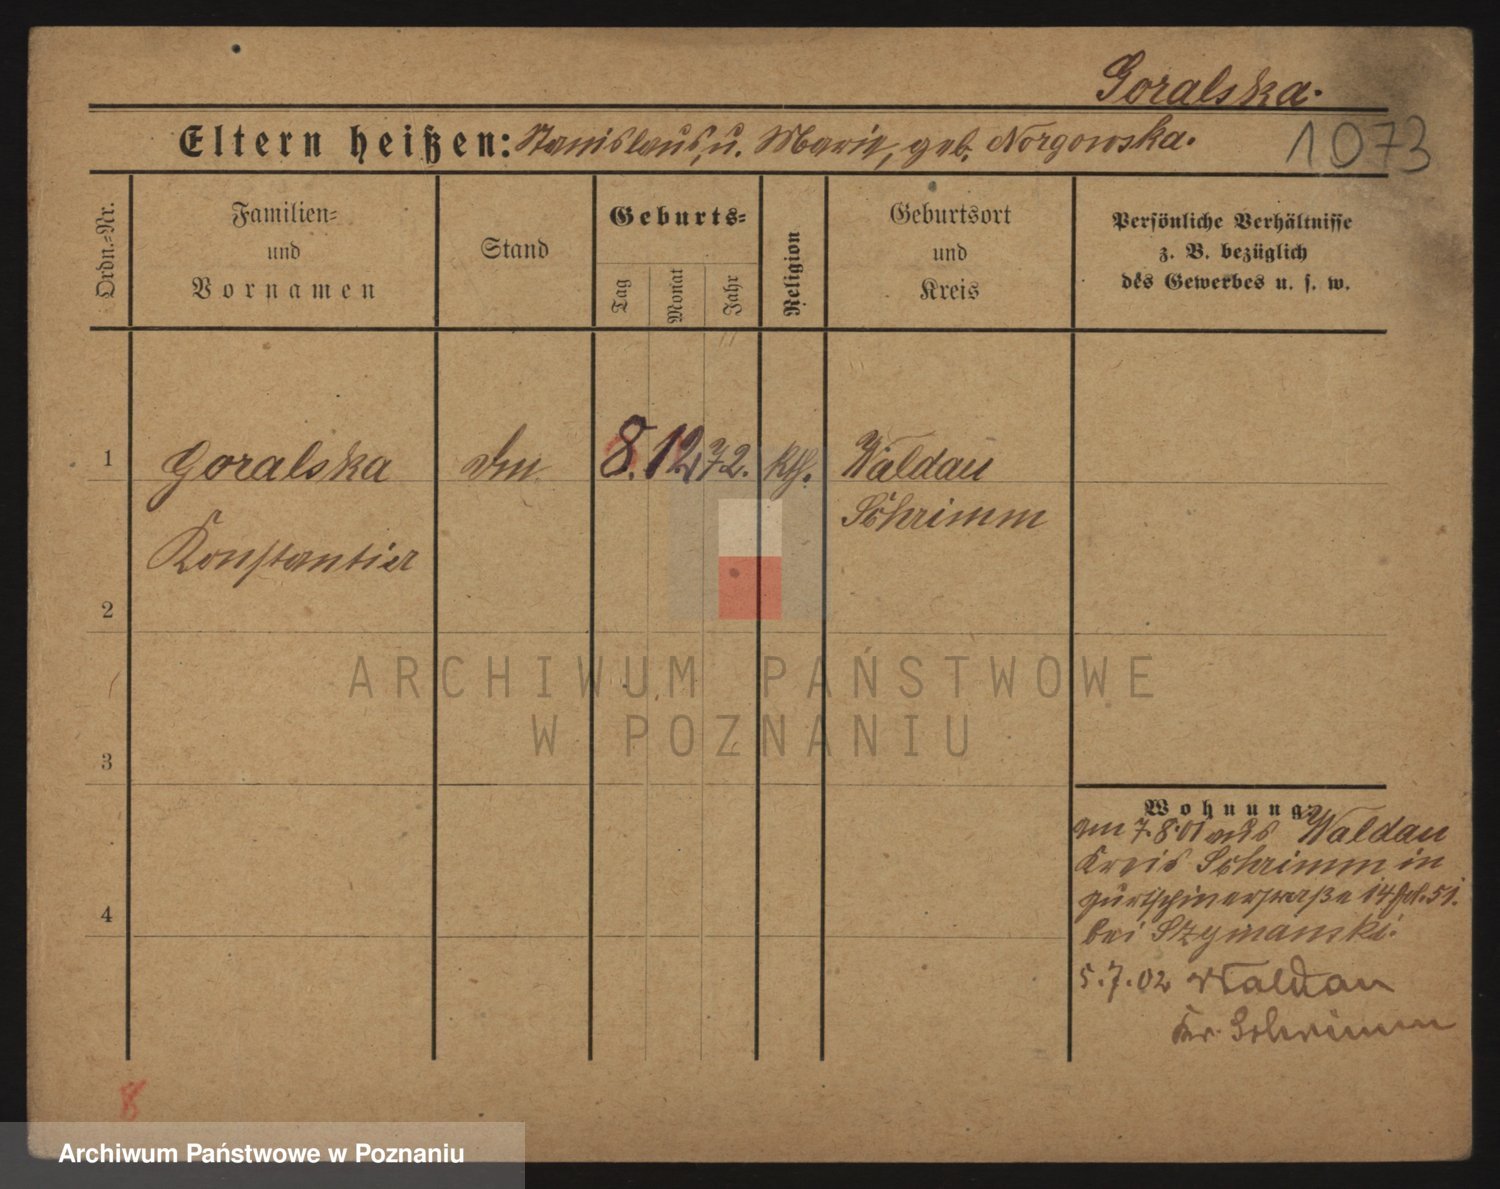 Goralska.
Eltern heißen: Stanislaus, u. Marie, geb. Norgowska.
1073
Ordn.-Nr.
Familien-
und
Vornamen
Stand
Geburts-
Tag
Monat
Jahr
Religion
Geburtsort
und
Kreis
Persönliche Verhältnisse
z. B. bezüglich
des Gewerbes u. s. w.
1
Goralska
8. 12 72. kth. Waldau
Schrimm
Konstantia
2
ARCHIWUM PAŃSTWOWE
W POZNANIU
3
Wohnung
am 7.8.01 aus Waldau
Kreis Schrimm in
14 51.
bei Szymanski.
4
5.7.02 Waldau
Kr. Schrimm
8
Archiwum Państwowe w Poznaniu